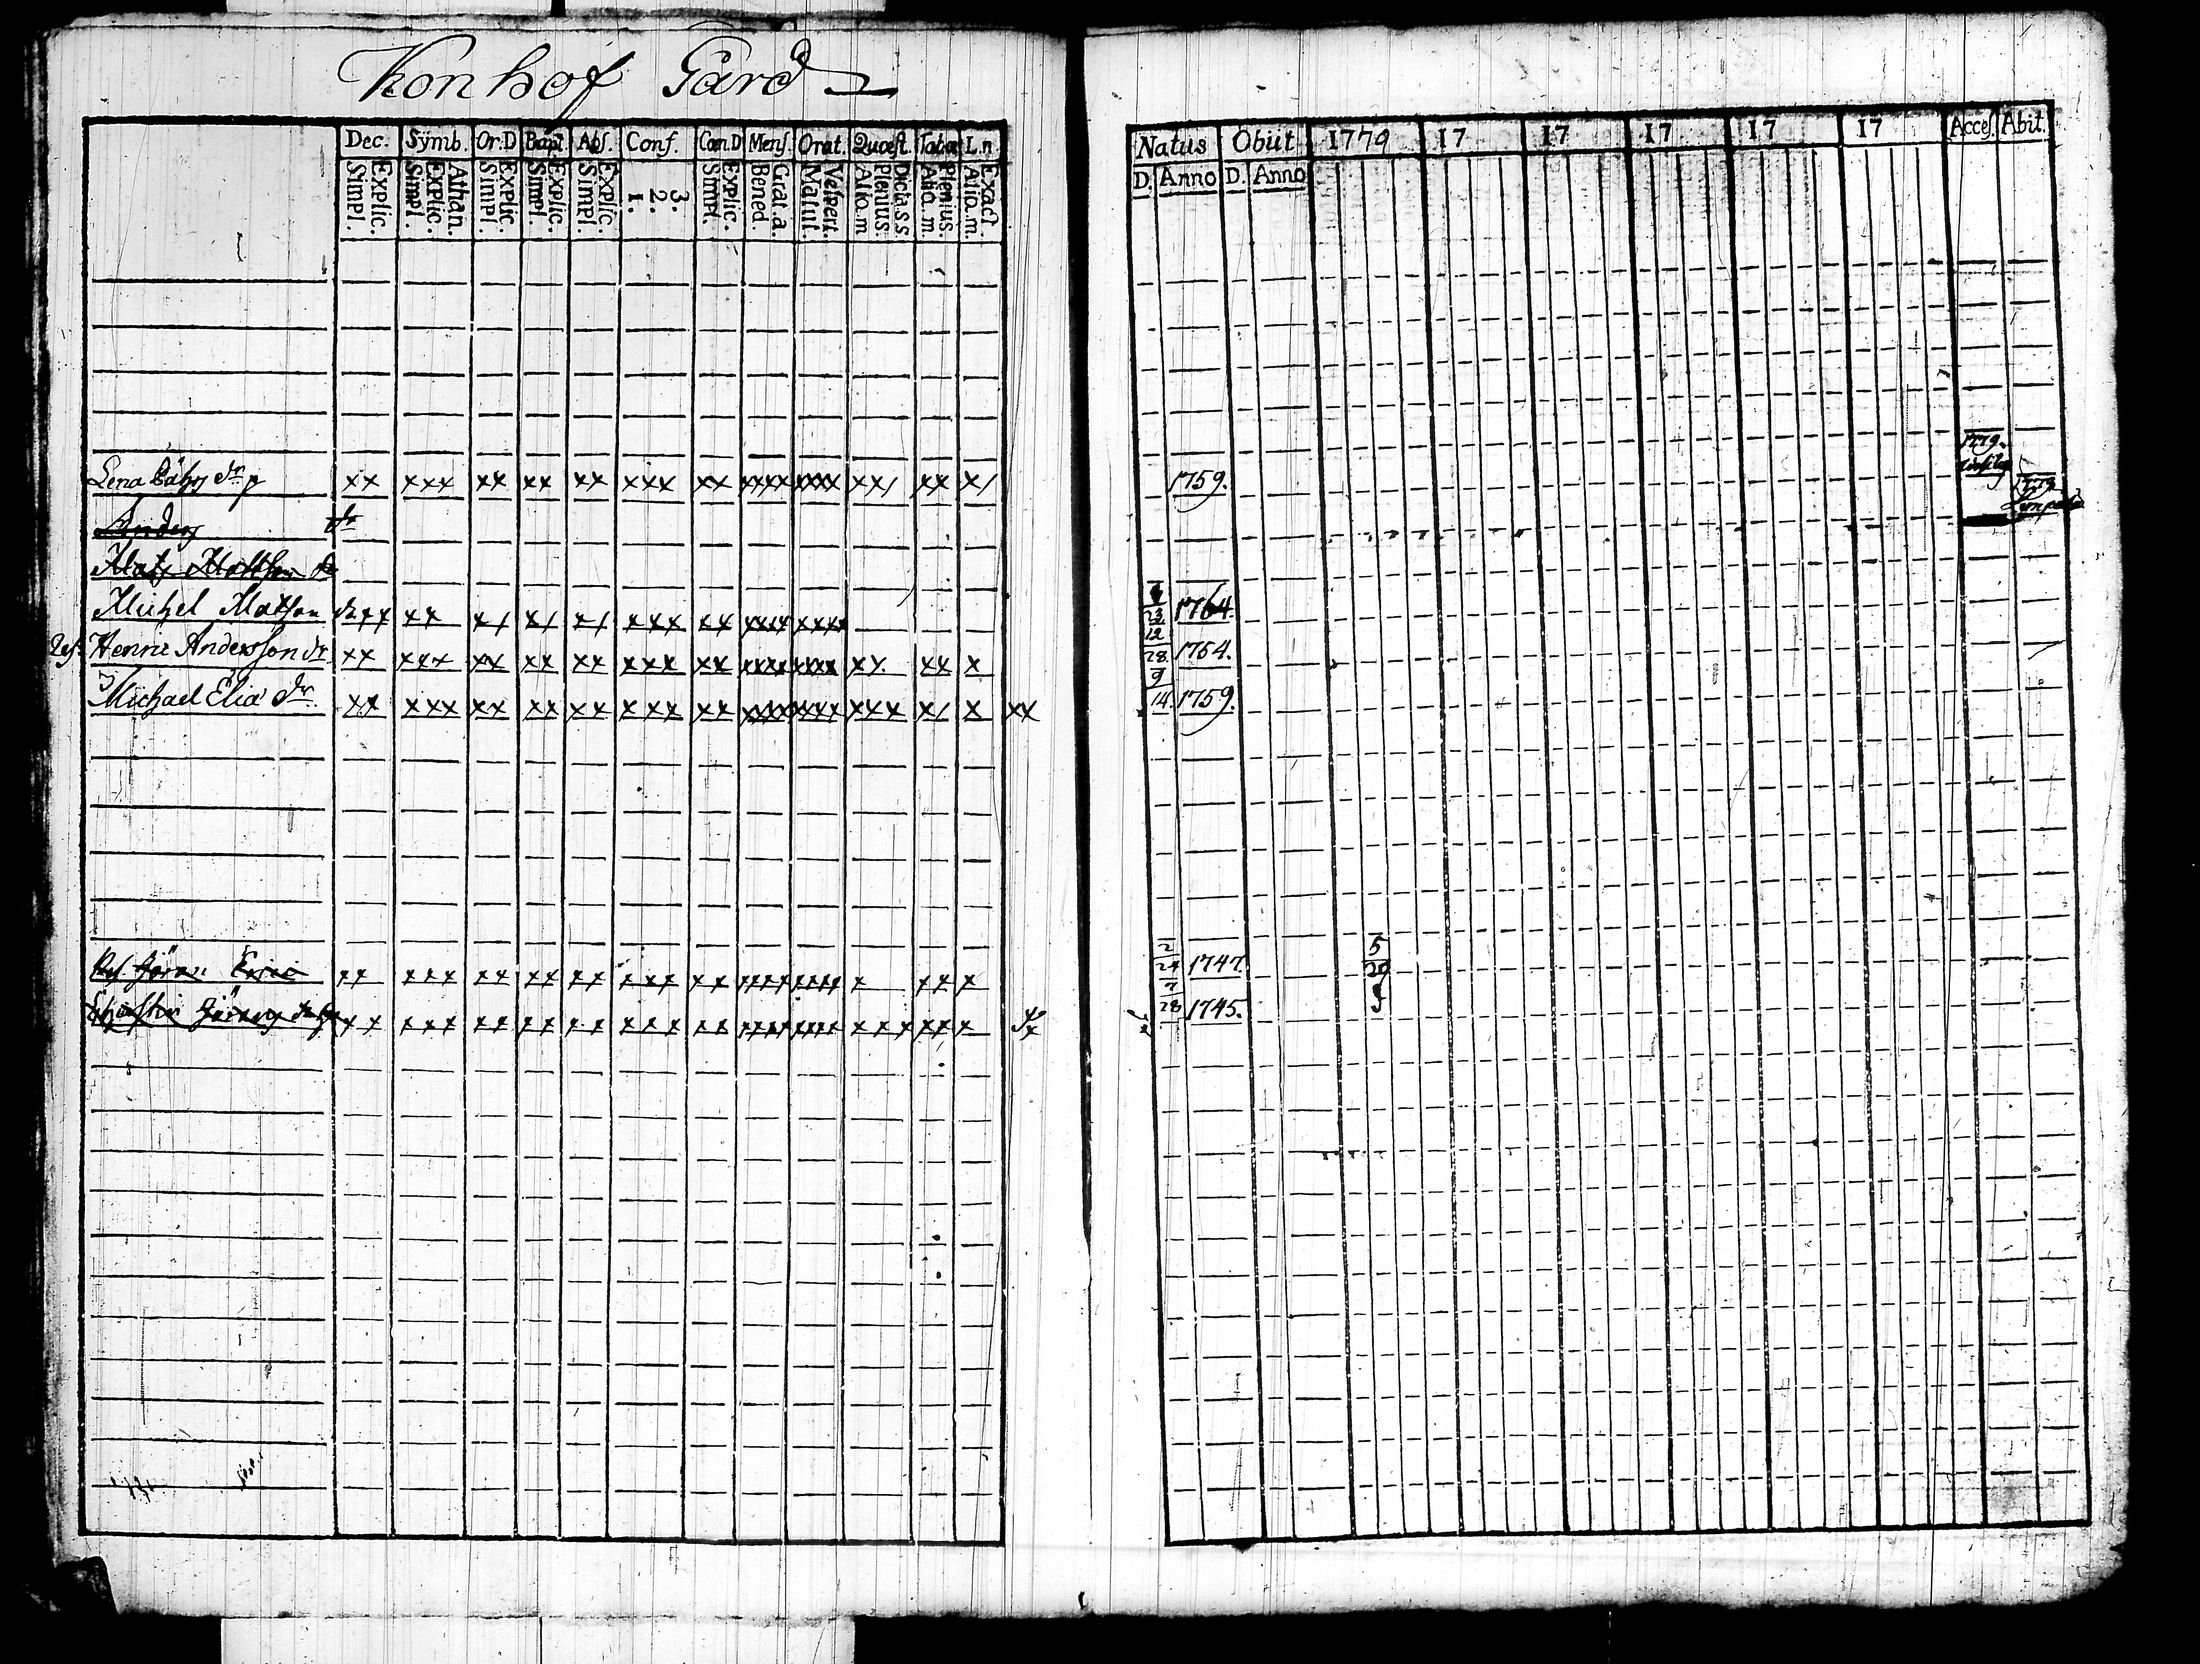 Konhof Gård
Dec. Symb. Or:D Bapt. Abs. Conf. Com D Mens. Orat. Quæst. Tabœ L.n
Simpl. Explic. Simpl. Explic. Athan. Simpl. Explic. Simpl. Explic. Simpl. Explic. 1. 2. 3. Simpl. Explic. Bened. Grat.a. Matut. Vespert. Alio.m Plenius. Dicta.S.s. Alio.m. Plenius. Alio.m. Exact.
Natus Obiit 1779 17 17 17 17 17 Acces. Abit.
D. Anno D. Anno
Lena xx xxx xx xx xx xxx xx xxxx xxxx xx/ xx x/ 1759. 1779.
Anders dr
Mats Mattson
Michel Matson dr xx xx x/ x/ x/ xxx xx xxxx xxxx 23 1764.
Henric Andersson dr xx xxx xx xx xx xxx xx xxxx xxxx xx xx x 12 28 1764.
Michael Elia dr xx xxx xx xx xx xxx xx xxxx xxxx xxx x/ x xx 9 14. 1759.
Göran Erici xx xxx xx xx xx xxx xx xxxx xxxx x xxx x 2 24 1747. 5 29
xx xxx xx xx xx xxx xx xxxx xxxx xxx xxx x 7 28 1745.